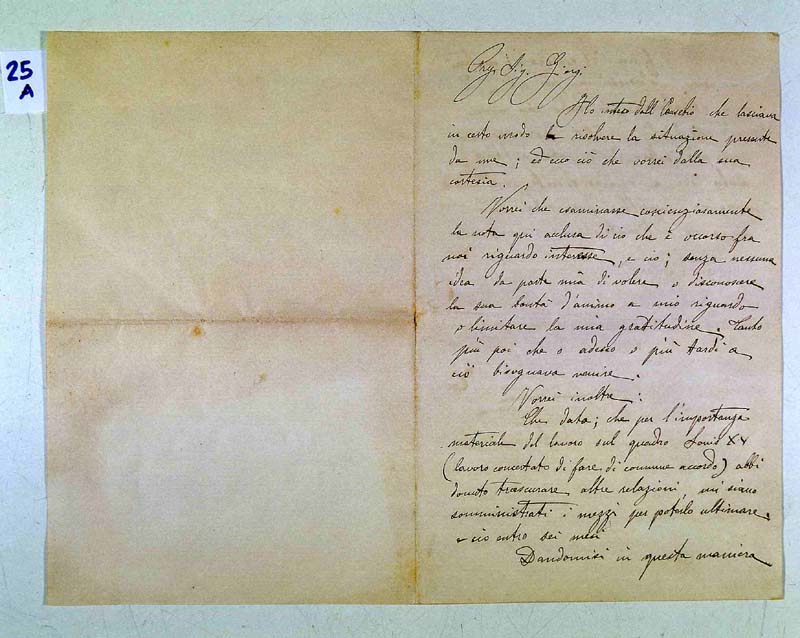 25
A
Preg. Sig. Giorgi
Ho inteso dall'Eusebio che lasciava
in certo modo risolvere la situazione presente
da me; ed ecco ciò che vorrei dalla sua
cortesia.
Vorrei che esaminasse coscienziosamente
la nota qui acclusa di ciò che è occorso fra
noi riguardo interesse, e ciò; senza nessuna
idea da parte mia di volere o disconoscere
la sua bontà d'animo a mio riguardo
o limitare la mia gratitudine. Tanto
più poi che o adesso o più tardi a
ciò bisognava venire.
Vorrei inoltre:
Che data; che per l'importanza
materiale del lavoro sul quadro Louis XV
(lavoro concertato di fare di comune accordo) abbi
dovuto trascurare altre relazioni, mi siano
somministrati i mezzi per poterlo ultimare
e ciò entro sei mesi
Dandomisi in questa maniera